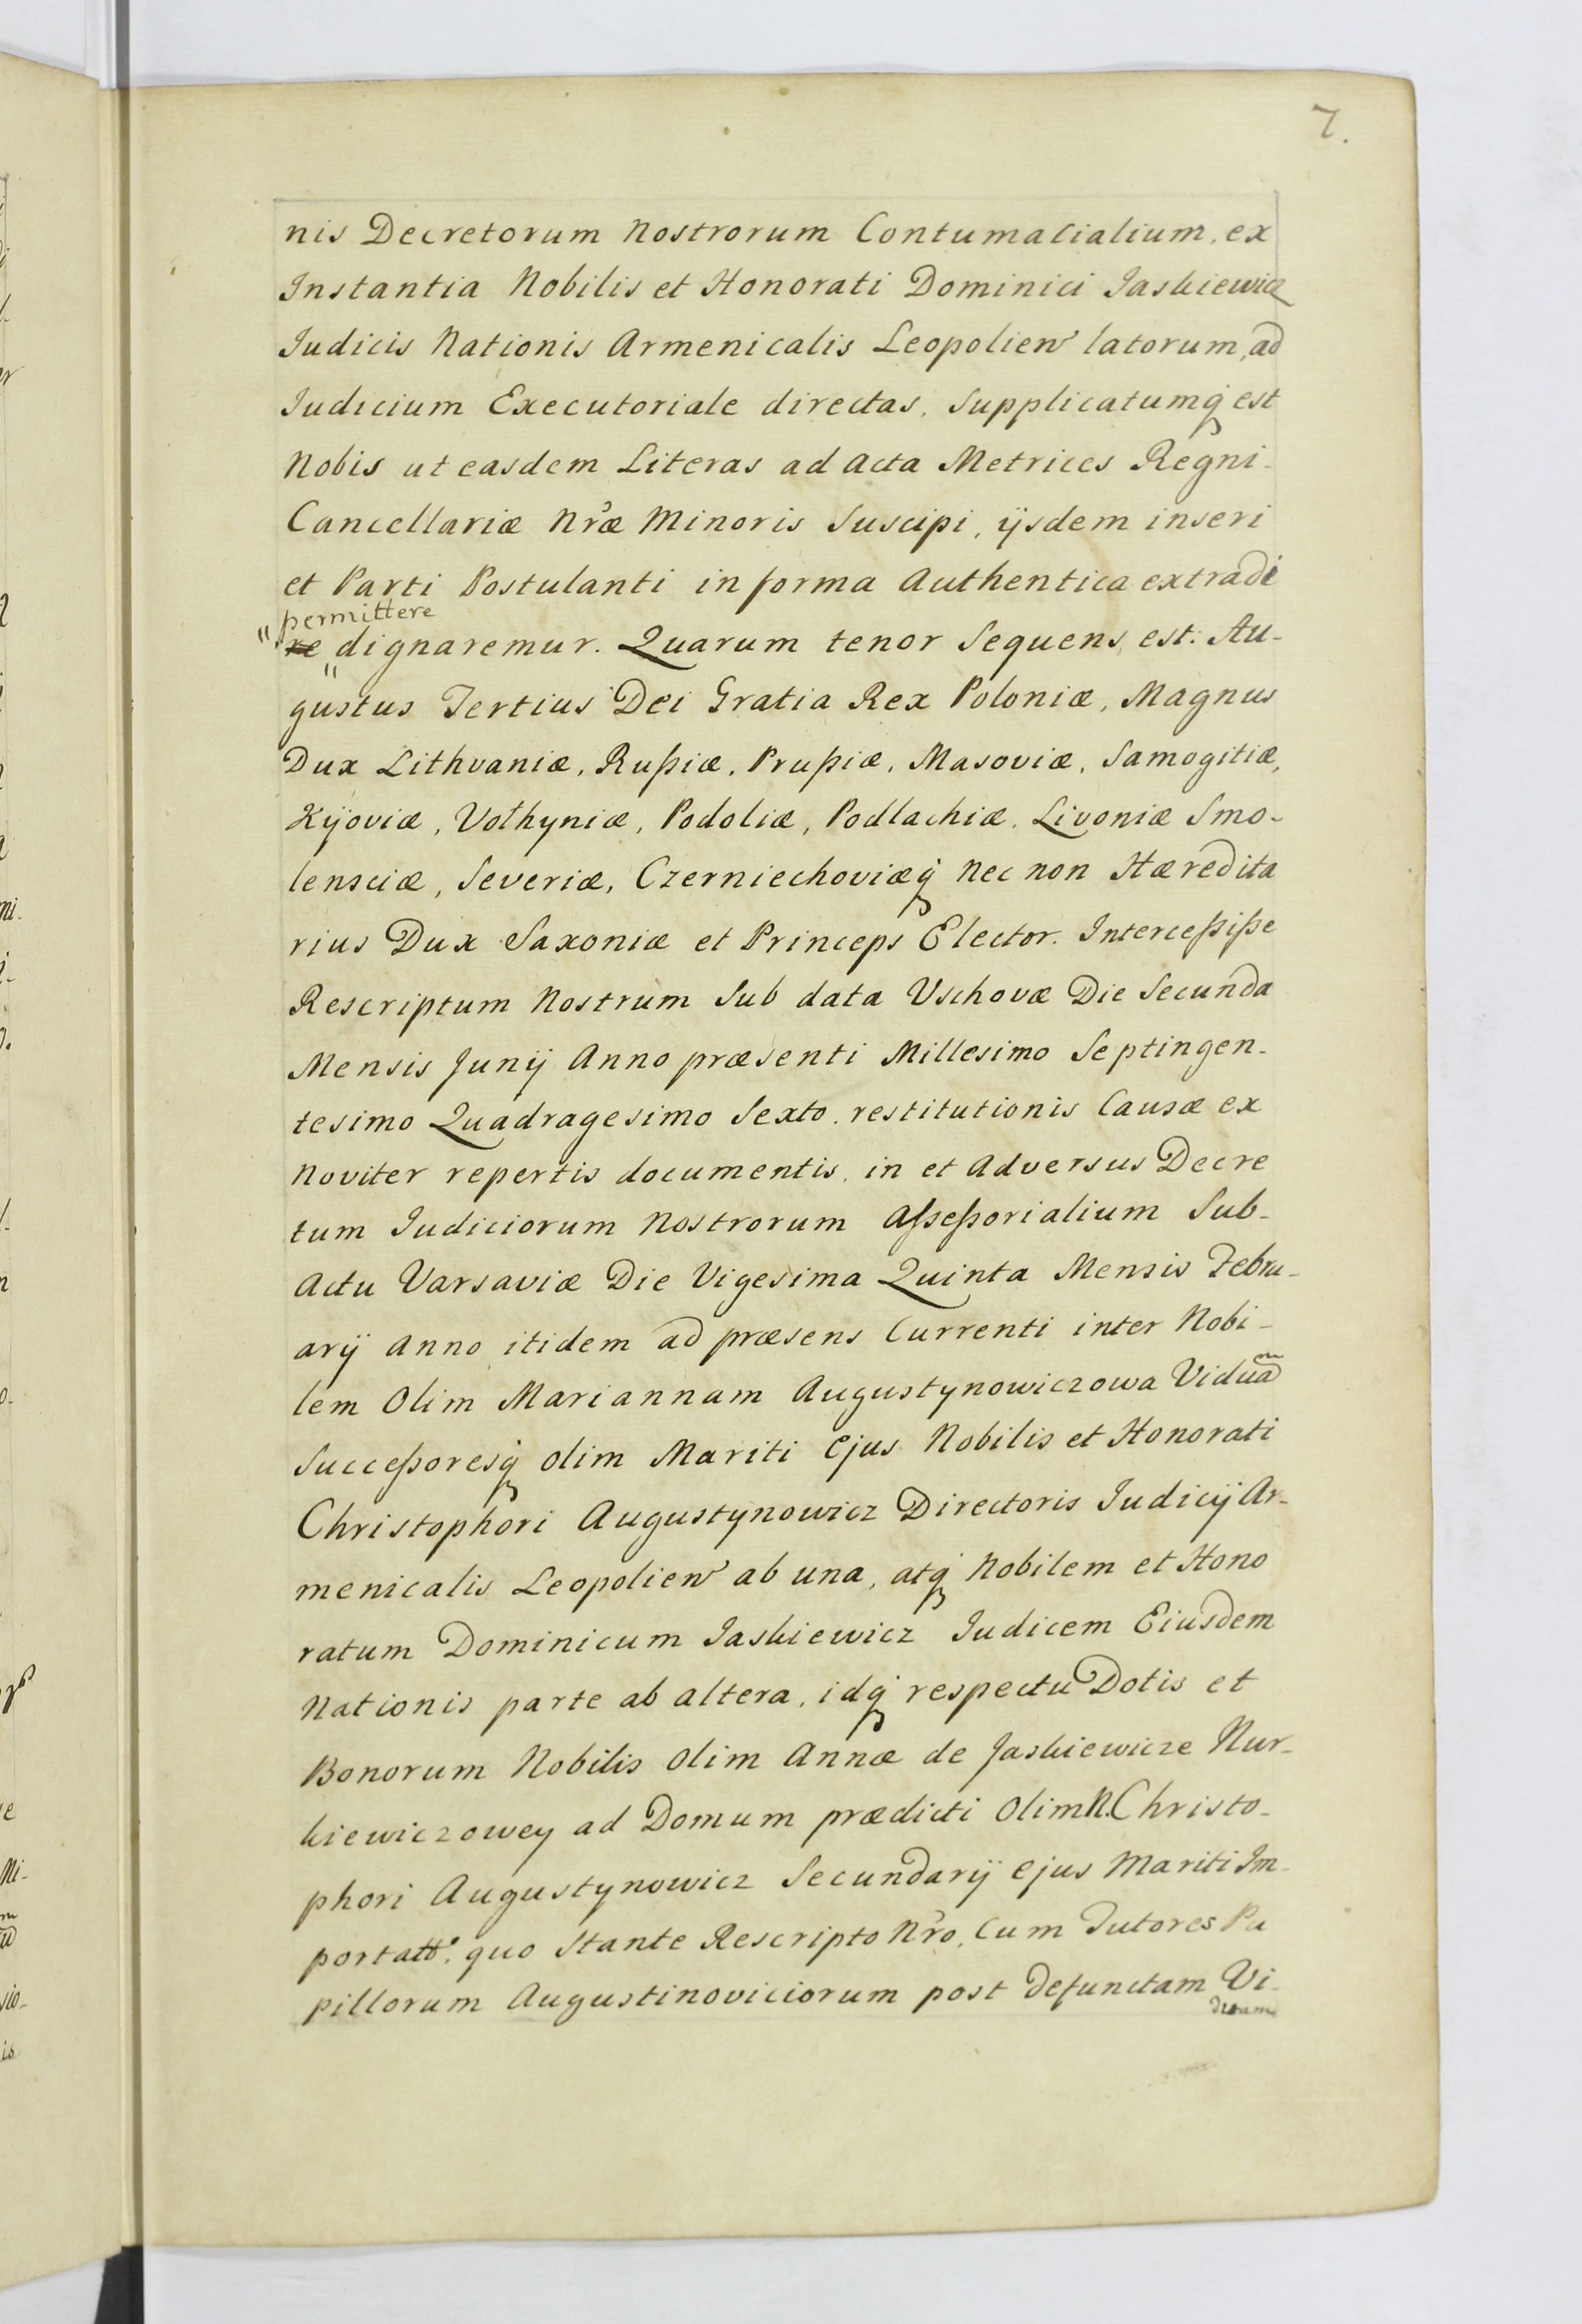 7.
nis Decretorum Nostrorum Contumacialium, ex
Instantia Nobilis et Honorati Dominici Jaskiewicz
Judicis Nationis Armenicalis Leopolien̄ latorum, ad
Judicium Executoriale directas, Supplicatumq́ est
Nobis ut easdem Literas ad Acta Metrices Regni
Cancellariæ Nr̃æ Minoris Suscipi, ijsdem inseri
et Parti Postulanti in forma Authentica extradi
permittere
re dignaremur. Quarum tenor Sequens est. Au-
gustus Tertius Dei Gratia Rex Poloniæ, Magnus
Dux Lithvaniæ, Rußiæ, Prußiæ, Masoviæ, Samogitiæ,
Kijoviæ, Vołhyniæ, Podoliæ, Podlachiæ, Livoniæ Smo-
lensciæ, Severiæ, Czerniechoviæq́ Nec non Hæredita
rius Dux Saxoniæ et Princeps Elector. Interceßiße
Rescriptum Nostrum Sub data Uschovæ Die Secunda
Mensis Junij Anno præsenti Millesimo Septingen-
tesimo Quadragesimo Sexto, restitutionis Causæ ex
Noviter repertis documentis, in et Adversus Decre
tum Judiciorum Nostrorum Aßeßorialium Sub-
Actu Varsaviæ Die Vigesima Quinta Mensis Febru-
arij Anno itidem ad præsens Currenti inter Nobi-
lem Olim Mariannam Augustynowiczowa Viduam
Succeßoresq́ olim Mariti Ejus Nobilis et Honorati
Christophori Augustynowicz Directoris Judicij Ar-
menicalis Leopolien̄ ab una, atq́ Nobilem et Hono
ratum Dominicum Jaskiewicz Judicem Eiusdem
Nationis parte ab altera, idq́ respectu Dotis et
Bonorum Nobilis olim Annæ de Jaskiewicze Nur-
kiewiczowey ad Domum prædicti Olim N. Christo-
phori Augustynowicz Secundarij Ejus Mariti Im-
portatt°. quo Stante Rescripto Nr̃o, Cum Tutores Pu
pillorum Augustinoviciorum post Defunctam Vi-
duam